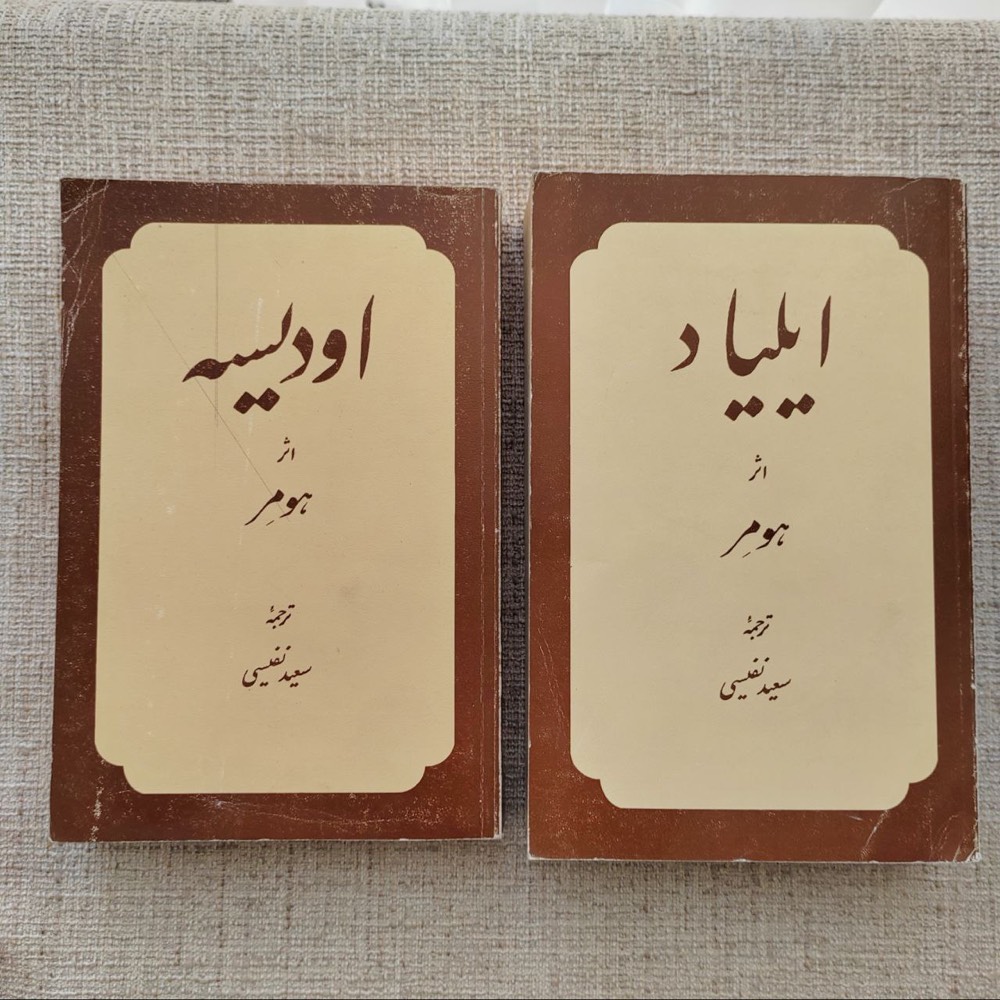 ایلیاد
اثر
هومِر
ترجمهٔ
سعید نفیسی
اودیسه
اثر
هومِر
ترجمهٔ
سعید نفیسی